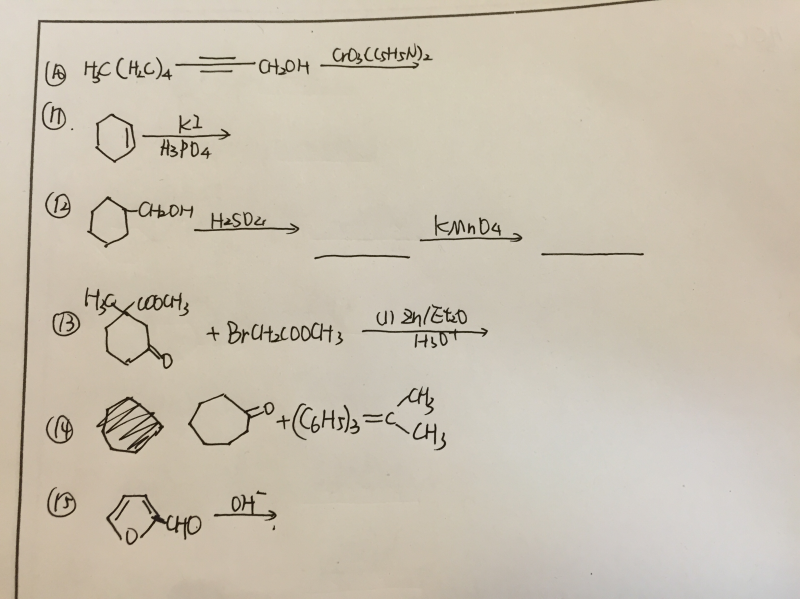 (10) H3C(H2C)4 CH2OH CrO3(C5H5N)2
(11). KI
H3PO4
(12) CH2OH H2SO4 KMnO4
(13) H3C COOCH3 + BrCH2COOCH3 (1) Zn/Et2O
O H3O+
(14) O + (C6H5)3=C CH3
CH3
(15) O CHO OH-